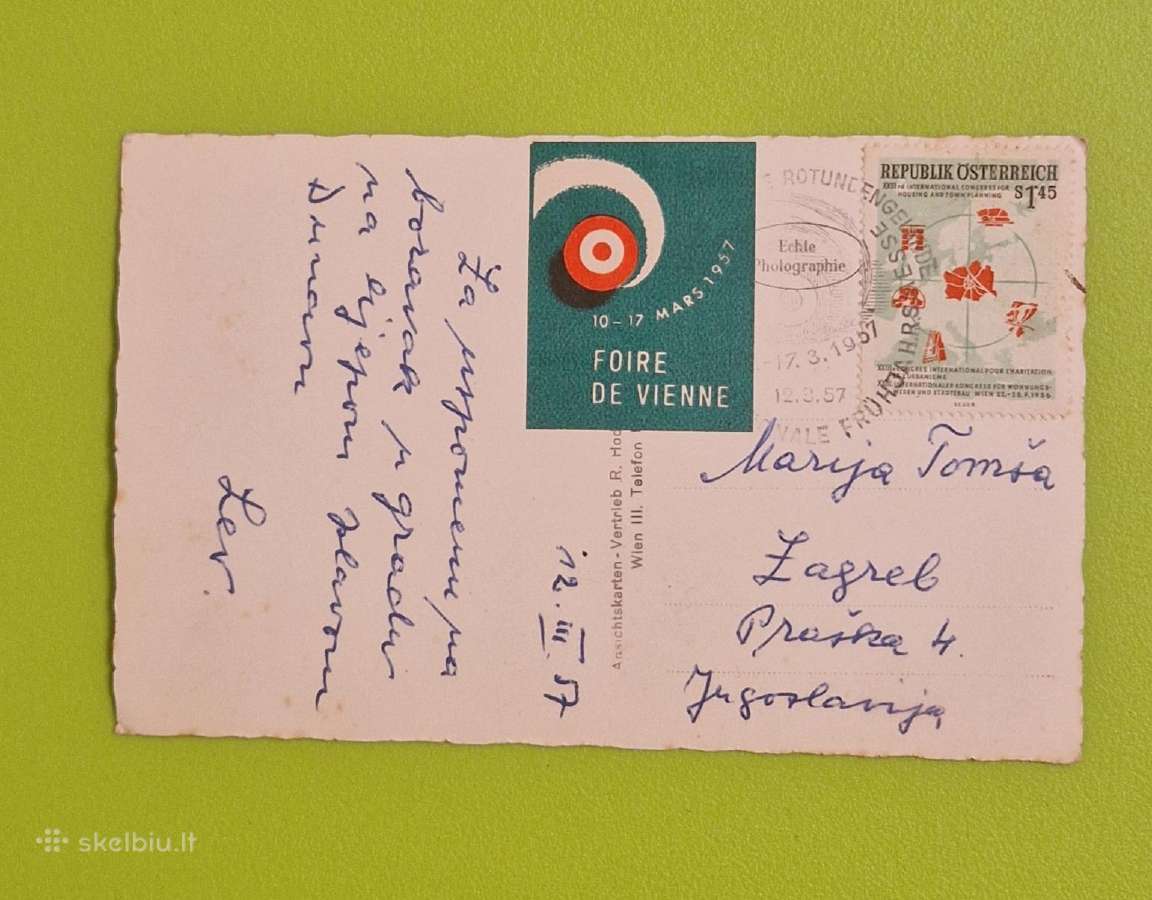 Za uspomenu na
boravak u gradu
na lijepom plavom
Dunavu
Lev
12. III. 57
10 – 17 MARS 1957
FOIRE
DE VIENNE
Ansichtskarten - Vertrieb R.
Wien III. Telefon
Echte
Photographie
ROTUNDENGELÄNDE
17. 3. 1957
12.3.57
FRÜHJAHRSMESSE
REPUBLIK ÖSTERREICH
XXIIIrd INTERNATIONAL CONGRESS FOR
HOUSING AND TOWN PLANNING
S 1.45
XXIIIe CONGRES INTERNATIONAL POUR L'HABITATION
URBANISME
INTERNATIONALER KONGRESS FÜR WOHNUNGS-
WESEN UND STÄDTEBAU WIEN 22.-28.7.1956
Marija Tomša
Zagreb
Praška 4.
Jugoslavija
skelbiu.lt